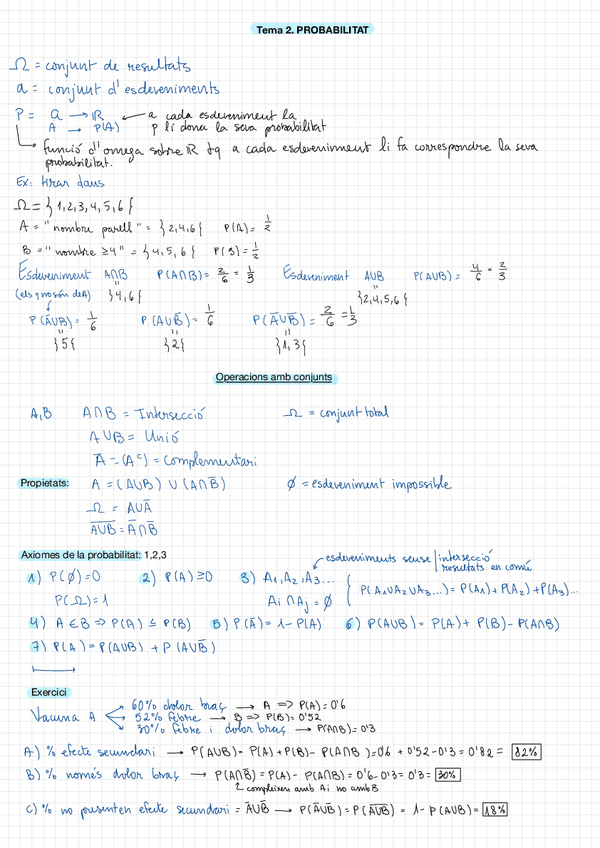 Tema 2. PROBABILITAT
Ω = conjunt de resultats
a = conjunt d'esdeveniments
P = a → ℝ ← a cada esdeveniment la
A → P(A) p li dona la seva probabilitat
funció d'omega sobre ℝ tq a cada esdeveninment li fa correspondre la seva
probabilitat.
Ex: tirar daus
Ω = {1,2,3,4,5,6}
A = "nombre parell" = {2,4,6} P(A) = 1/2
B = "nombre ≥4" = {4,5,6} P(B) = 1/2
Esdeveniment A∩B P(A∩B) = 2/6 = 1/3 Esdeveniment A∪B P(A∪B) = 4/6 = 2/3
(els q no són de A) {4,6} {2,4,5,6}
P(Ā∪B) = 1/6 P(A∪B̄) = 1/6 P(Ā∪B̄) = 2/6 = 1/3
{5} {2} {1,3}
Operacions amb conjunts
A,B A∩B = Intersecció Ω = conjunt total
A∪B = Unió
Ā = (Aᶜ) = Complementari
Propietats: A = (A∪B) ∪ (A∩B̄) ∅ = esdeveniment impossible
Ω = A∪Ā
A̅∪̅B̅ = Ā∩B̄
Axiomes de la probabilitat: 1,2,3
esdeveniments sense intersecció
resultats en comú
1) P(∅)=0 2) P(A)≥0 3) A₁,A₂,A₃... P(A₁∪A₂∪A₃...) = P(A₁)+P(A₂)+P(A₃)...
P(Ω)=1 Ai∩Aj = ∅
4) A∈B ⇒ P(A) ≤ P(B) 5) P(Ā) = 1-P(A) 6) P(A∪B) = P(A) + P(B) - P(A∩B)
7) P(A) = P(A∪B) + P(A∪B̄)
Exercici
60% dolor braç → A ⇒ P(A)=0'6
Vacuna A 52% febre → B ⇒ P(B)=0'52
30% febre i dolor braç → P(A∩B)=0'3
A) % efecte secundari → P(A∪B) = P(A)+P(B)-P(A∩B) = 0'6 + 0'52-0'3 = 0'82 = 82%
B) % només dolor braç → P(A∩B̄) = P(A) - P(A∩B) = 0'6-0'3 = 0'3 = 30%
compleixen amb A i no amb B
C) % no presenten efecte secundari = Ā∪B̄ → P(Ā∪B̄) = P(A̅∪̅B̅) = 1-P(A∪B) = 18%